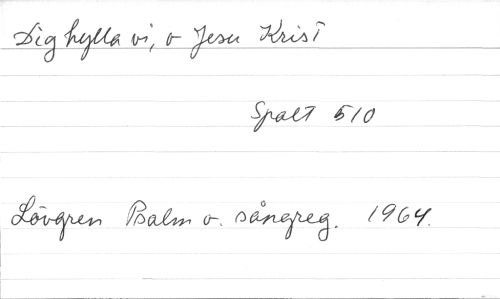 Dig hylla vi, o Jesu Krist
Spalt 510
Lövgren Psalm o. sångreg. 1964.